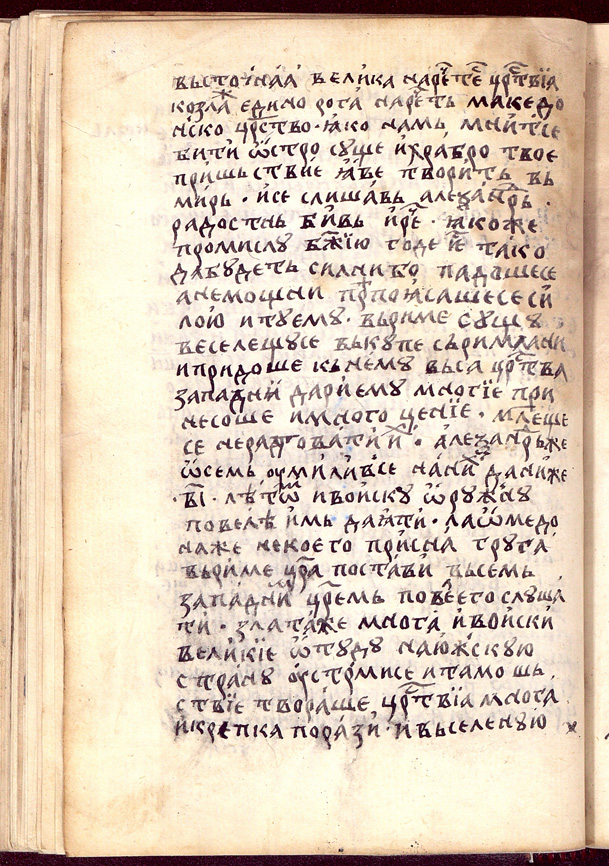 вьсточнаꙗ велика нарⷱ҇ете црⷭ҇твїа
козлаⷤ едино рога нарⷱ҇еть македо
нско црⷭ҇тво · ꙗко намь мнитсе
бити ѡстро суще и храбро твое
пришьствїе ꙗве творить вь
мирь · и се слишавь алеѯаⷩ҇дрь ·
радостнь бивь и рⷱ҇е · ꙗкоже
промислу бж҃їю годе иⷭ҇ тако
да будеть силни бо падоше се
а немощни прⷷ҇поꙗсаше се си
лою и туему · вь риме сущу
веселещу се вькупе сь римлани
и придоше кь нему вьса црⷭ҇тва
западни дари ему многїе при
несоше и много ценїе · млⷭ҇еще
се не ратовати иⷯ · алеѯаⷩ҇дрь же
ѡ семь умиливсе на ниⷯ дани же
· в҃і · лѣтѡⷨ и воиску ѡружну
повелѣ имь даꙗти · лаѡмедо
на же некоего присна друга
вь риме цр҃а постави вьсемь
западниⷨ црⷭ҇емь повеⷧ҇ его слуша
ти · злата же многа и воиски
великїе ѿтуду на южскую
страну устрⷨ҇ми се и тамо шь
ствїе твораще црⷭ҇твїа многа
и крепка порази · и вьселеную